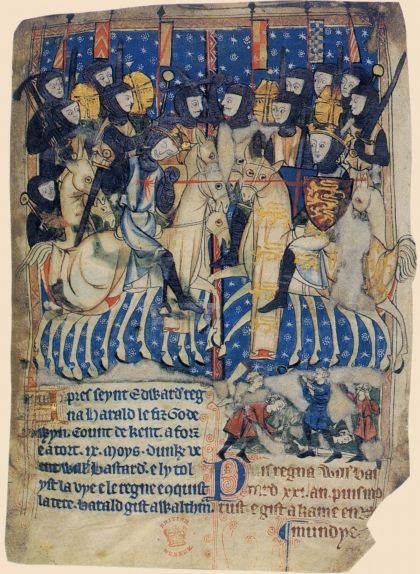 Apres seynt Edward reg
na Harald le fiz Gode
wyn. Count de kent. a forz
e a tort. ix. moys. Dunke ve
ent Will' bastard. e ly tol
yst la vye e le regne enquist
la tere. Harald gist a Waltham
Puis regna Will' bas
tard xxi. an. puis mo
rust e gist a kame en
mundye
BRITISH
MUSEUM